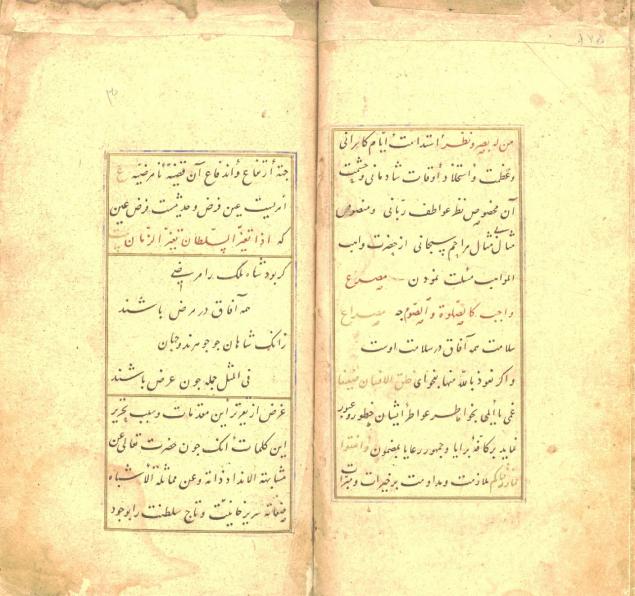 من له بصر و نظر استدامت ایام کامرانی
و عظمت و استخلاد اوقات شادمانی و حشمت
آن مخصوص نظر عواطف ربانی و منصوص
مثال مراحم سبحانی از حضرت واهب
المواهب مسئلت نمودن مصراع
واجب کالصلوة والصوم چه مصراع
سلامت همه آفاق در سلامت اوست
و اگر نعوذ بالله منها بفحوای خلق الانسان ضعیفا
غمی یا المی بخواطر عواطر ایشان خطور و عبور
نماید بر کافه برایا و جمهور رعایا بمضمون
ملازمت و مداومت بر خیرات و مبرات
جهة ارتفاع و اندفاع آن قضیه نامرضیه
امریست عین فرض و حدیثیست فرض عین
که اذا تغیر السلطان تغیر الزمان
گر بود شاه ملک را مرضی
همه آفاق در مرض باشند
زانک شاهان چو جوهرند و جهان
فی المثل جمله چون عرض باشند
غرض از تقریر این مقدمات و سبب تحریر
این کلمات آنک چون حضرت تعالی عن
مشابهة الانداد ذاته و عن مماثلة الاشباه
صفاته سریر خانیت و تاج سلطنت را بوجود